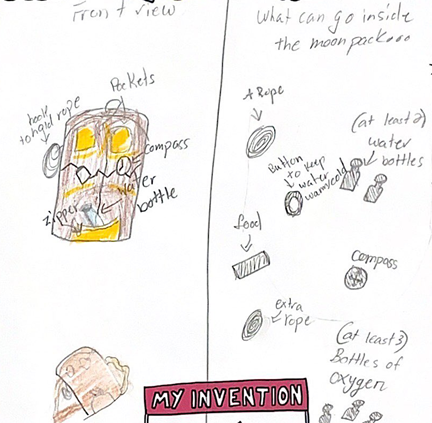 Front view
Pockets
hook
to hold rope
compass
water
bottle
zipper
What can go inside
the moonpack...
A Rope
(at least 2)
water
bottles
Button
to keep
water
warm/cold
food
compass
extra
rope
(at least 3)
Bottles of
oxygen
MY INVENTION